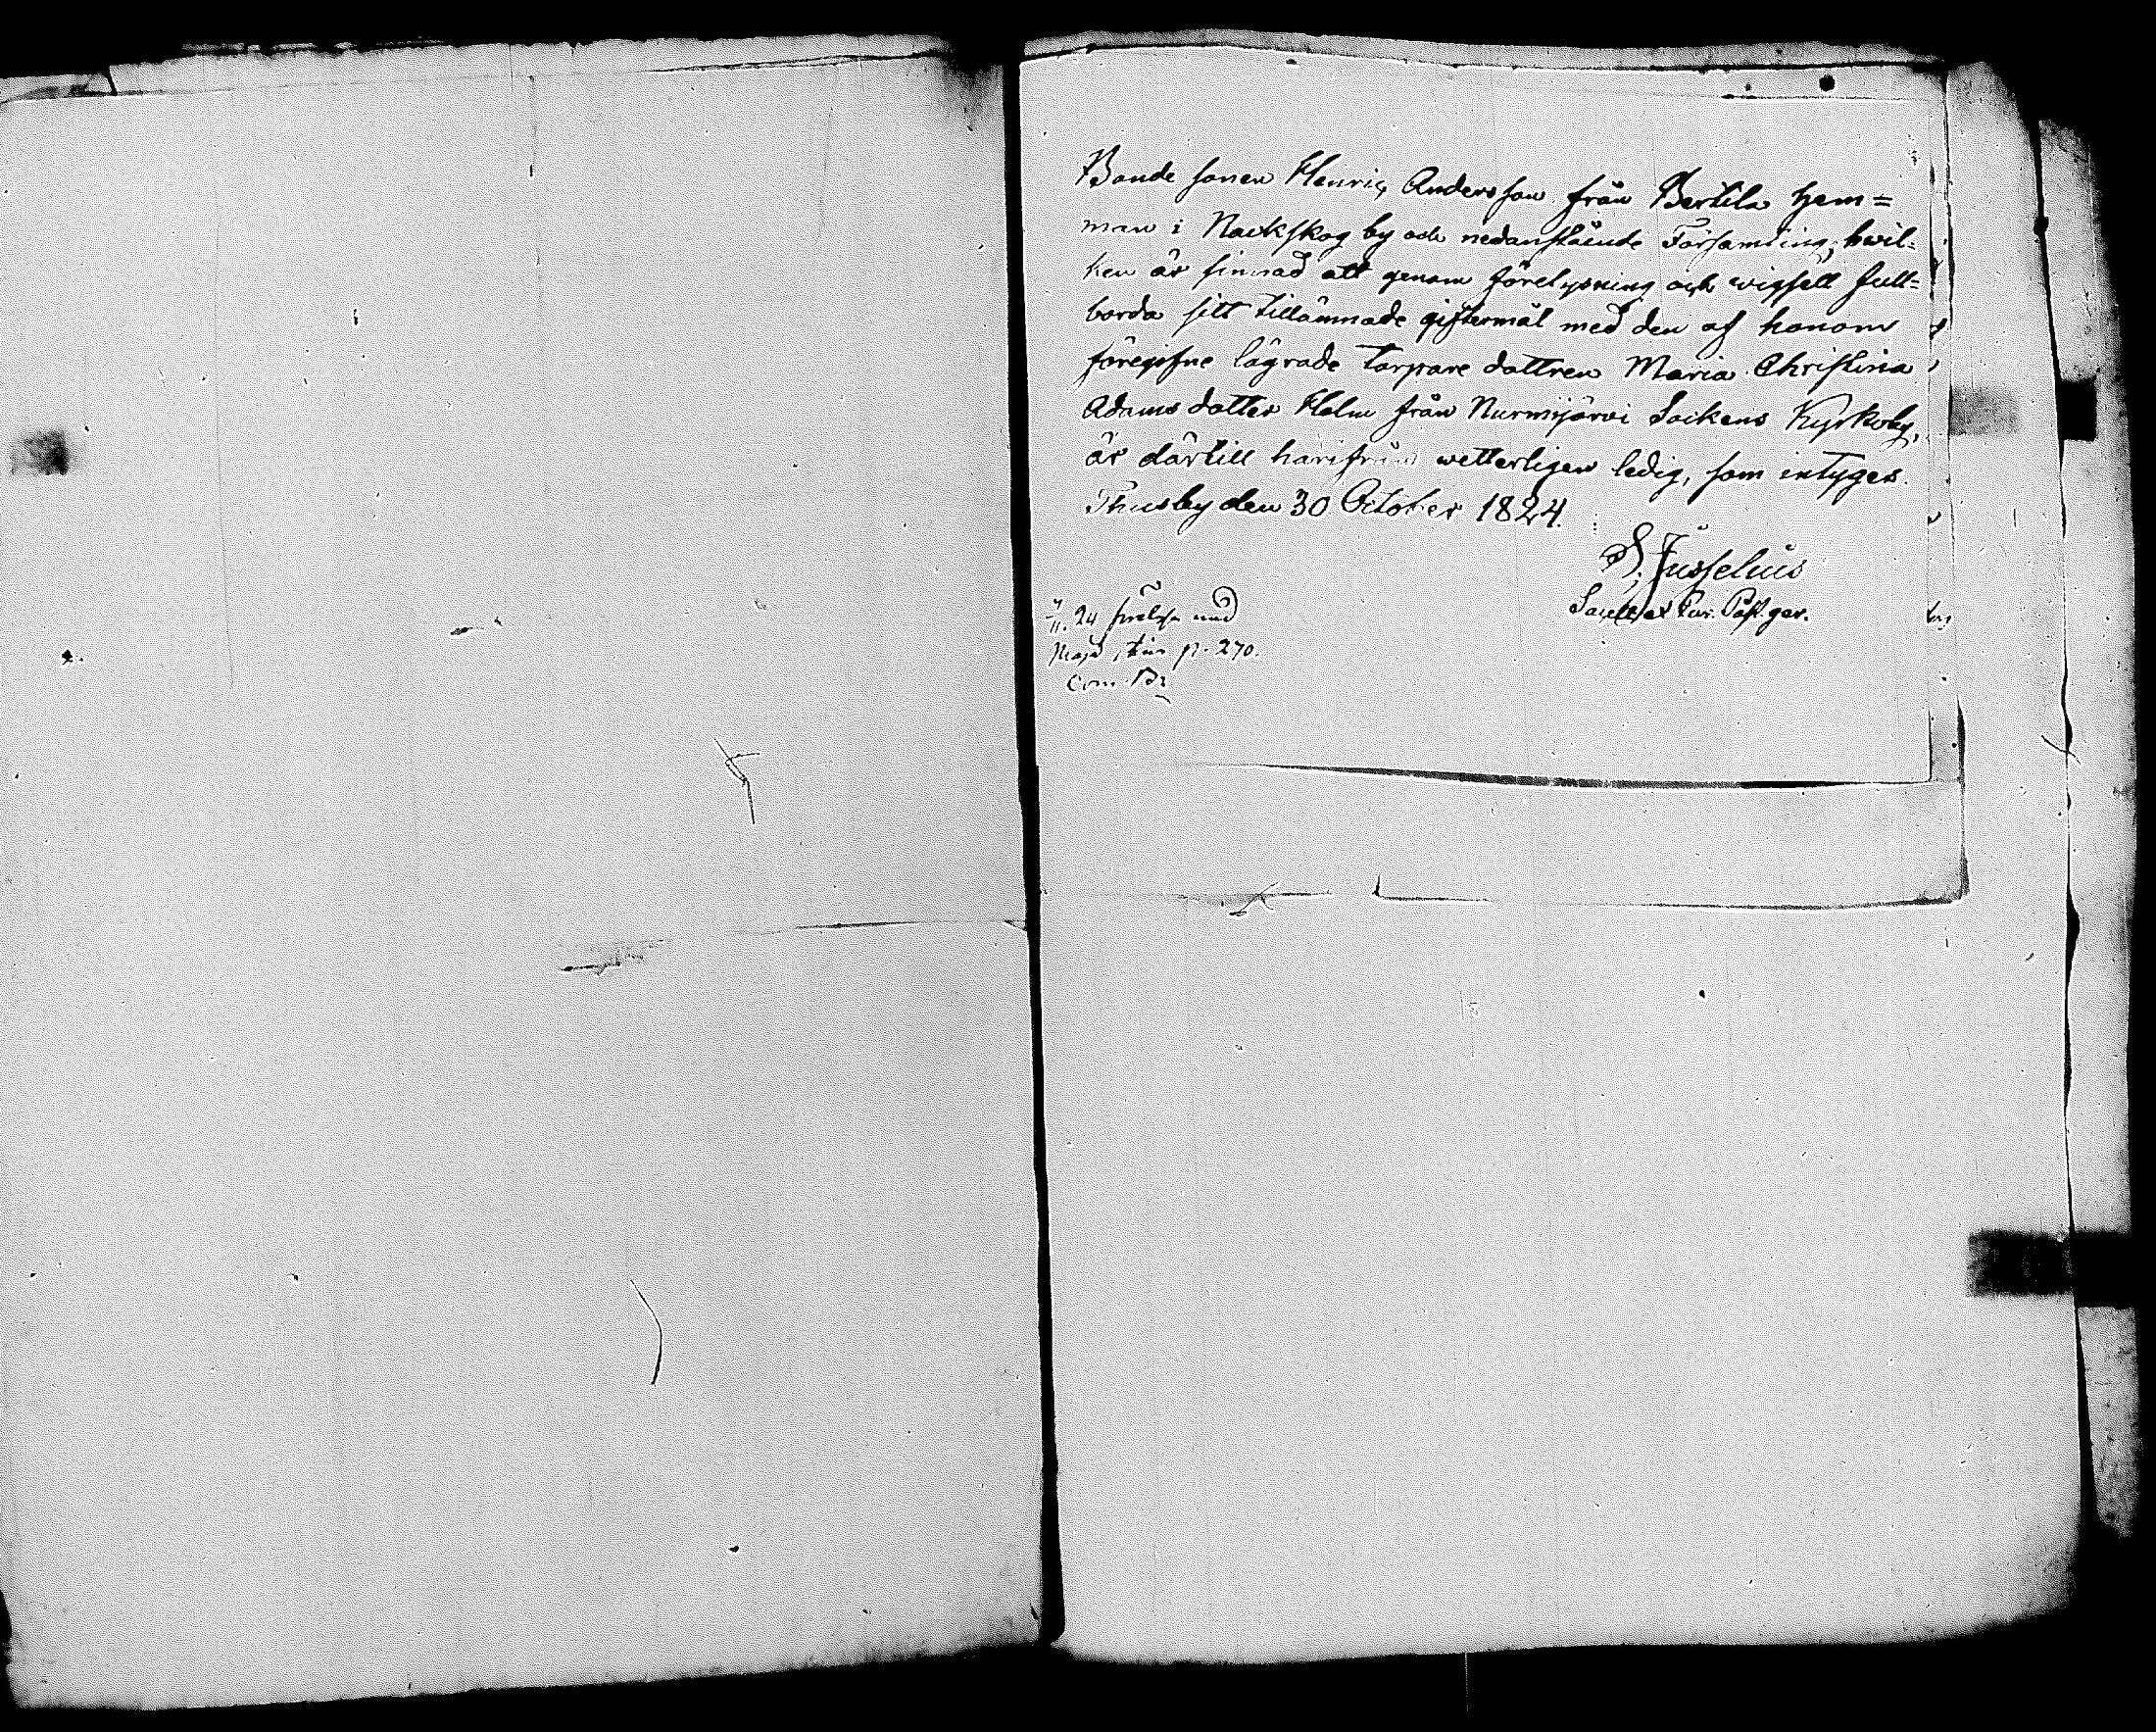 Bonde sonen Henric Andersson från Bertila hem=
man i Nackskog by och nedanstående Församling, hwil-
ken är sinnad att genom förelysning och wigsell full-
borda sitt tillämnade giftermål med den af honom
föregifne lägrade torpare dottren Maria Christina
Adams dotter Holm från Nurmijärvi Sockens Kyrkoby,
är därtill härifrån wetterligen ledig, som intyges.
Thusby den 30 October 1824.
Jusselius
24
p. 270.